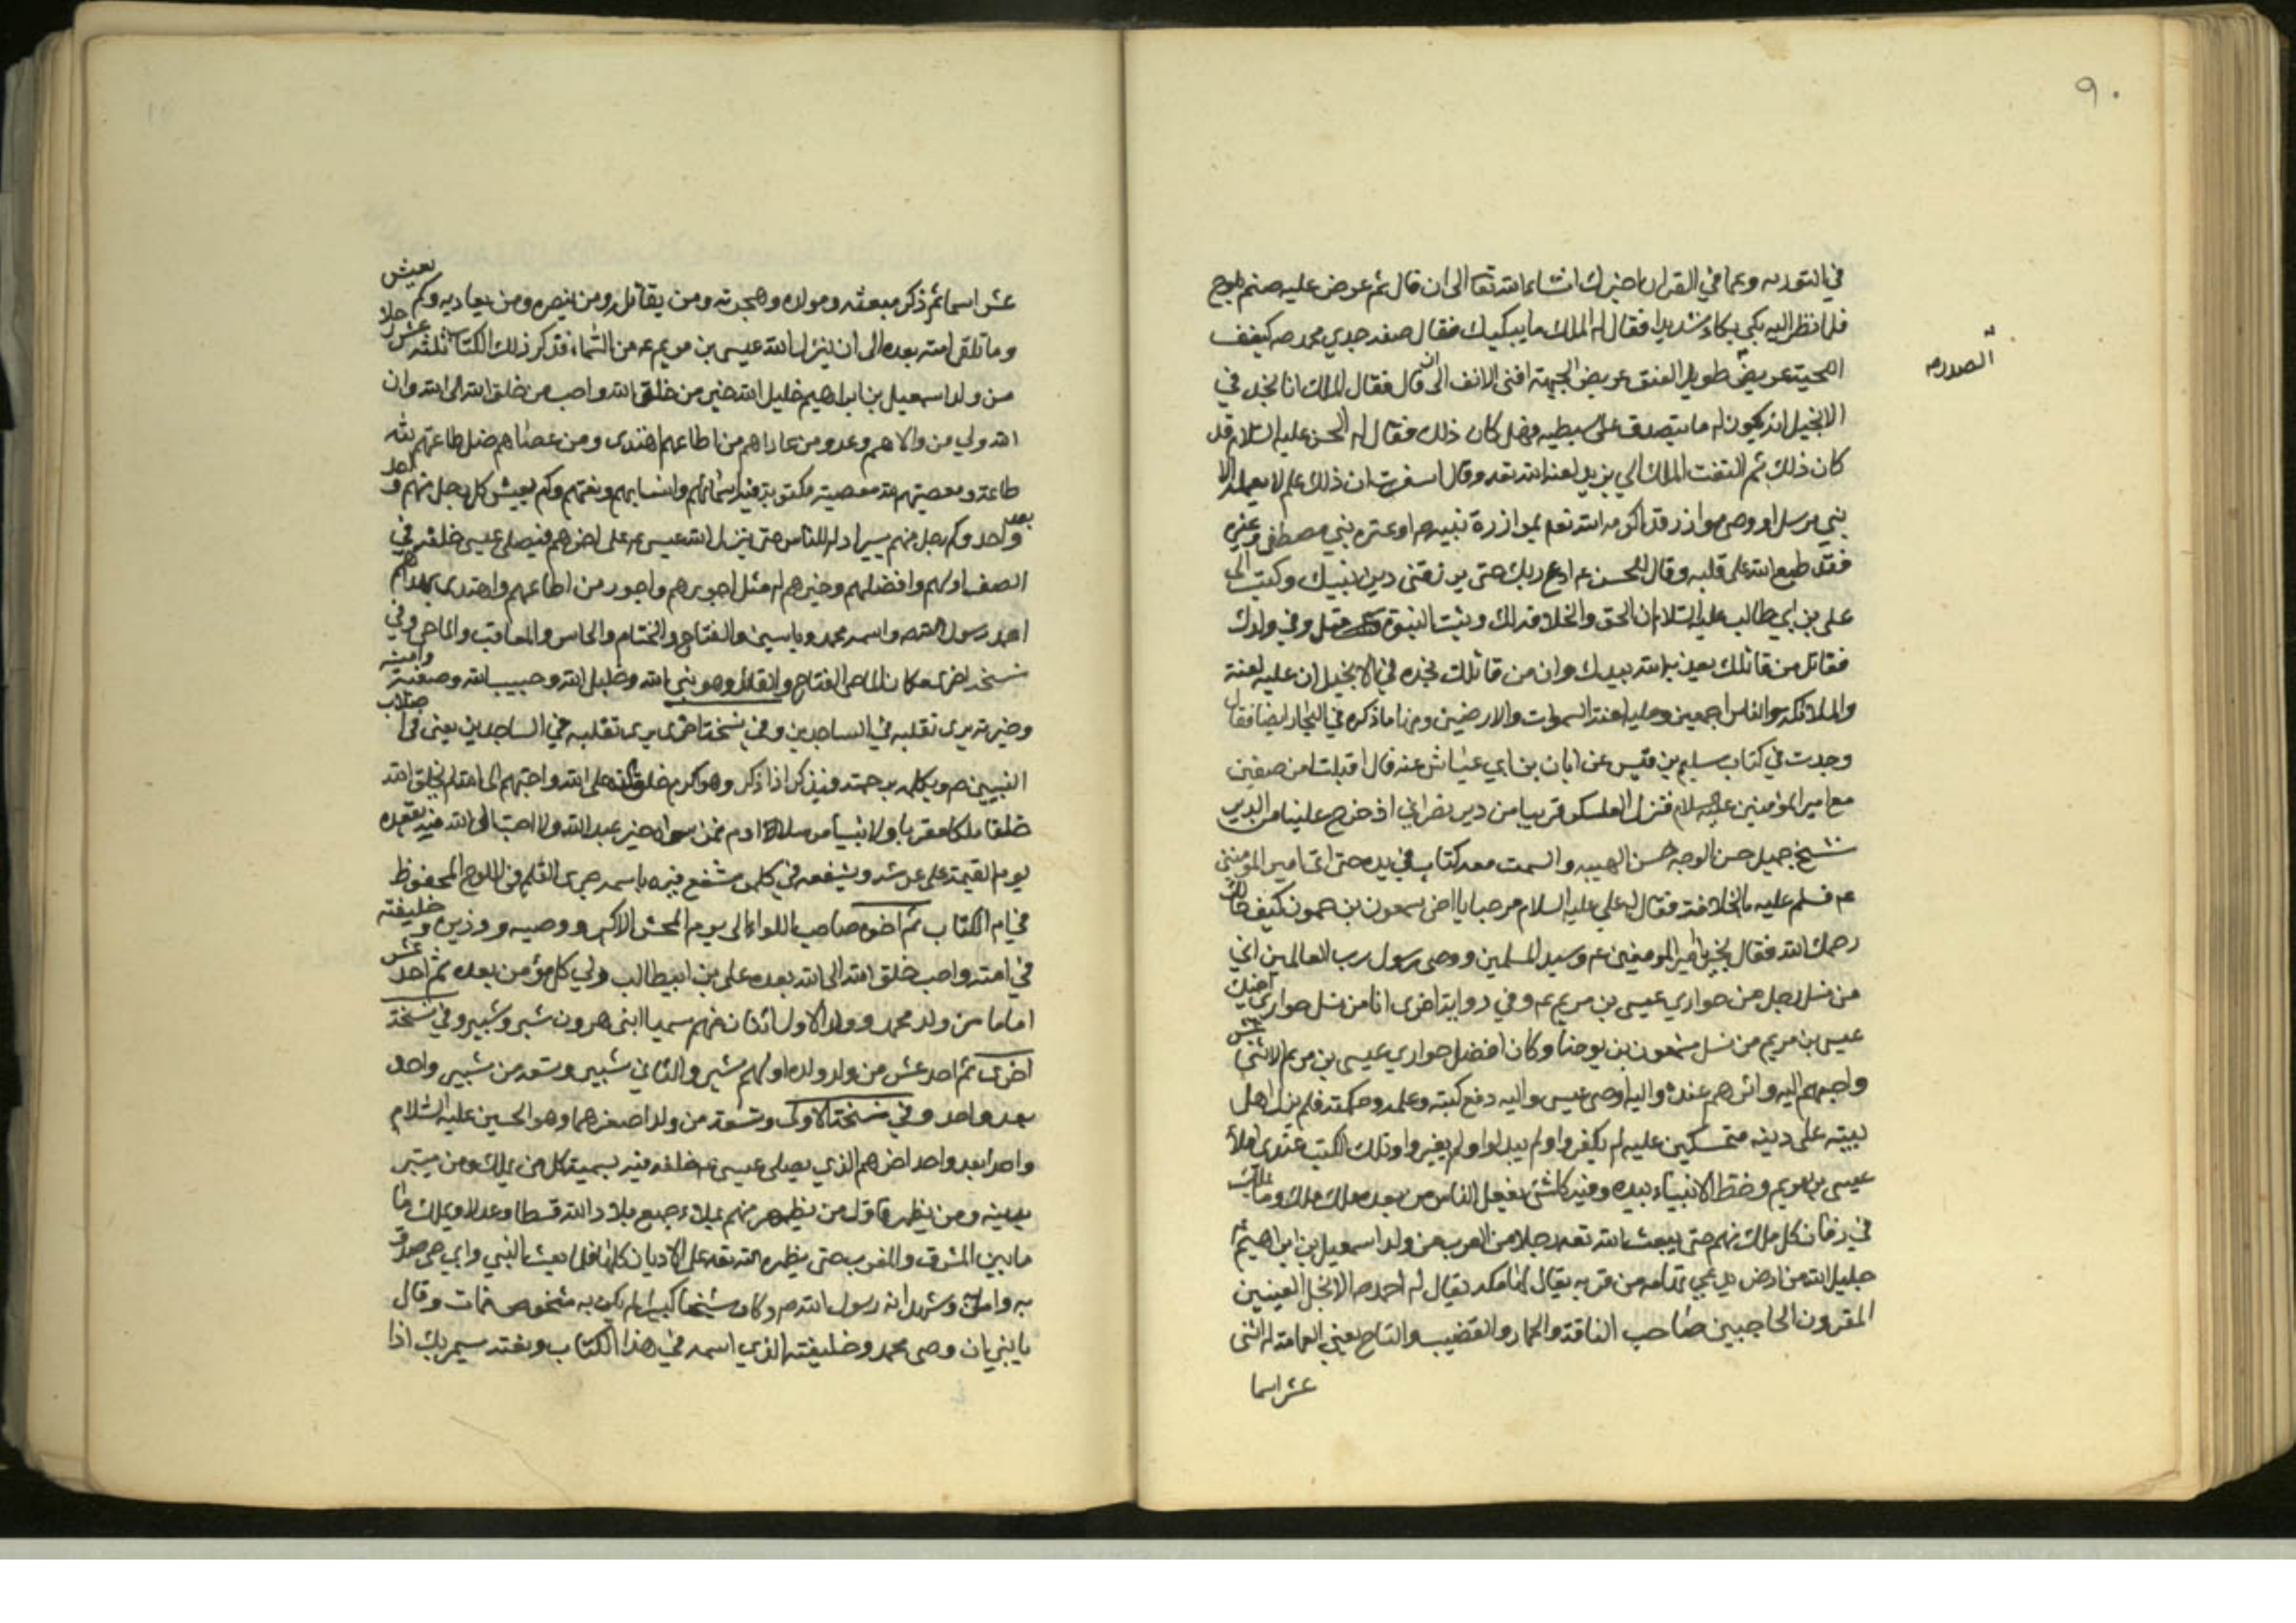 ٩٠
في التوريه وعما في القران اخبرك انشاء الله تعا الى ان قال ثم عرض عليه صنم بلوح
فلما نظر اليه بكى بكاء شديدا فقال له الملك ما يبكيك فقال صفه جدي محمد ص كيفف
اللحية عريض طويل العنق عريض الجبهة اقنى الانف الى ان قال فقال الملك انا نجد في
الصدر ص
الانجيل انه يكون له ما يتصدق على سبطيه فهل كان ذلك فقال له الحسن عليه السلام قد
كان ذلك ثم التفت الملك الى يزيد لعنه الله تعه وقال اسفرت ان ذلك علم لا يعلمه الا
نبي مرسل او وصي موازر قد اكرمه الله تعه بموازرة نبيه ص او عترة نبي مصطفى وغيره
فقد طبع الله على قلبه وقال للحسن ع ادع ربك حتى يرزقني دين نبيك وكتب الى
علي بن ابي طالب عليه السلام ان الحق والخلافة لك وبيت النبوة وفي ولدك
فقاتل من قاتلك يعذبه الله بيدك وان من قاتلك نجده في الانجيل ان عليه لعنة
والملائكة والناس اجمعين وعليه لعنة السموات والارضين ومنها ما ذكره في البحار ايضا فقال
وجدت في كتاب سليم بن قيس عن ابان بن ابي عياش عنه قال اقبلنا من صفين
مع امير المؤمنين عليه السلام فنزل العسكر قريبا من دير نصراني اذ خرج علينا من الدير
شيخ جميل حسن الوجه حسن الهيبه والسمت معه كتاب في يده حتى اتى امير المومنين
ع فسلم عليه بالخلافة فقال له علي عليه السلام مرحبا يا اخي شمعون بن حمون كيف حالك
رحمك الله فقال بخير يا امير المومنين ع وسيد المسلمين ووصي رسول رب العالمين اني
من نسل رجل من حواري عيسى بن مريم ع وفي رواية اخرى انا من نسل حواري اخيك
عيسى بن مريم من نسل شمعون بن يوحنا وكان افضل حواري عيسى بن مريم الاثني عشر
واحبهم اليه واثرهم عنده واليه اوصى عيسى واليه دفع كتبه وعلمه وحكمته فلم يزل اهل
بيته على دينه متمسكين عليه لم يكفروا ولم يبدلوا ولم يغيروا وتلك الكتب عندي املأ
عيسى بن مريم وخط الانبياء بيده وفيه كل شئ يفعل الناس من بعده ملك ملك وما يملك
في زمان كل ملك منهم حتى يبعث الله تعه رجلا من العرب من ولد اسمعيل بن ابراهيم
خليل الله من ارض تدعى تهامه من قريه يقال لها مكه يقال له احمد ص الانجل العينين
المقرون الحاجبين صاحب الناقة والحمار والقضيب والتاج يعني العمامة له اثنى
عشر اسما
عشر اسما ثم ذكر مبعثه ومولده وهجرته ومن يقاتله ومن ينصره ومن يعاديه وكم يعيش
وما تلقى امته بعده الى ان ينزل الله عيسى بن مريم ع من السماء فذكر ذلك الكتاب ثلثه عشر رجلا
من ولد اسمعيل بن ابراهيم خليل الله خير من خلق الله واحب من خلق الله الى الله وان
الله ولي من والاهم وعدو من عاداهم من اطاعهم اهتدى ومن عصاهم ضل طاعتهم لله
طاعة ومعصيتهم لله معصية مكتوبة فيه اسمائهم وانسابهم ونعتهم وكم يعيش كل رجل منهم واحد
بعد واحد وكم رجل منهم يسر اد له للناس حتى ينزل الله عيسى ع على اخرهم فيصلي عيسى خلفه في
الصف اولهم وافضلهم وخيرهم له مثل اجورهم واجور من اطاعهم واهتدى بهداهم
احمد رسول الله ص واسمه محمد وياسين والفتاح والختام والحاشر والعاقب والماحي وفي
نسخه اخرى مكان الماحي الفتاح والقائد وهو نبي الله وخليل الله وحبيب الله وصفيه وامينه
وخيرته يرى تقلبه في الساجدين وفي نسخة اخرى يرى تقلبه في الساجدين يعني في اصلاب
النبيين ص ويكلمه برحمته فيذكر اذا ذكر وهو اكرم خلق الله على الله واحبهم الى الله لم يخلق الله
خلقا ملكا مقربا ولا نبيا مرسلا ادم فمن سواه خير عند الله ولا احب الى الله منه يقعده
يوم القيمة على عرشه ويشفعه في كل من شفع فيه باسمه جرى القلم في اللوح المحفوظ
في ام الكتاب ثم اخوه صاحب اللواء الى يوم المحشر الاكبر ووصيه ووزيره وخليفته
في امته واحب خلق الله الى الله بعده علي بن ابيطالب ولي كل مؤمن بعده ثم احد عشر
اماما من ولد محمد وولد الاول اثنان منهم سميا ابنى هرون شبر وشبير وفي نسخة
اخرى ثم احد عشر من ولد ولده اولهم شبر والثاني شبير وتسعة من شبير واحد
بعد واحد وفي نسخة الاولى وتسعة من ولد اصغرهما وهو الحسين عليه السلام
واحدا بعد واحد اخرهم الذي يصلي عيسى ع خلفه فيه تسمية كل من يملك ومن يستتر
بدينه ومن يظهر فاول من يظهر منهم يملاء جميع بلاد الله قسطا وعدلا ويملك ما
ما بين المشرق والمغرب حتى يظهره الله تعه على الاديان كلها فلما بعث النبي وابي حي صدق
به وامن به وشهد انه رسول الله ص وكان شيخا كبيرا لم يكن به شخوص فمات وقال
يا بني ان وصي محمد وخليفته الذي اسمه في هذا الكتاب ونعته سيمر بك اذا